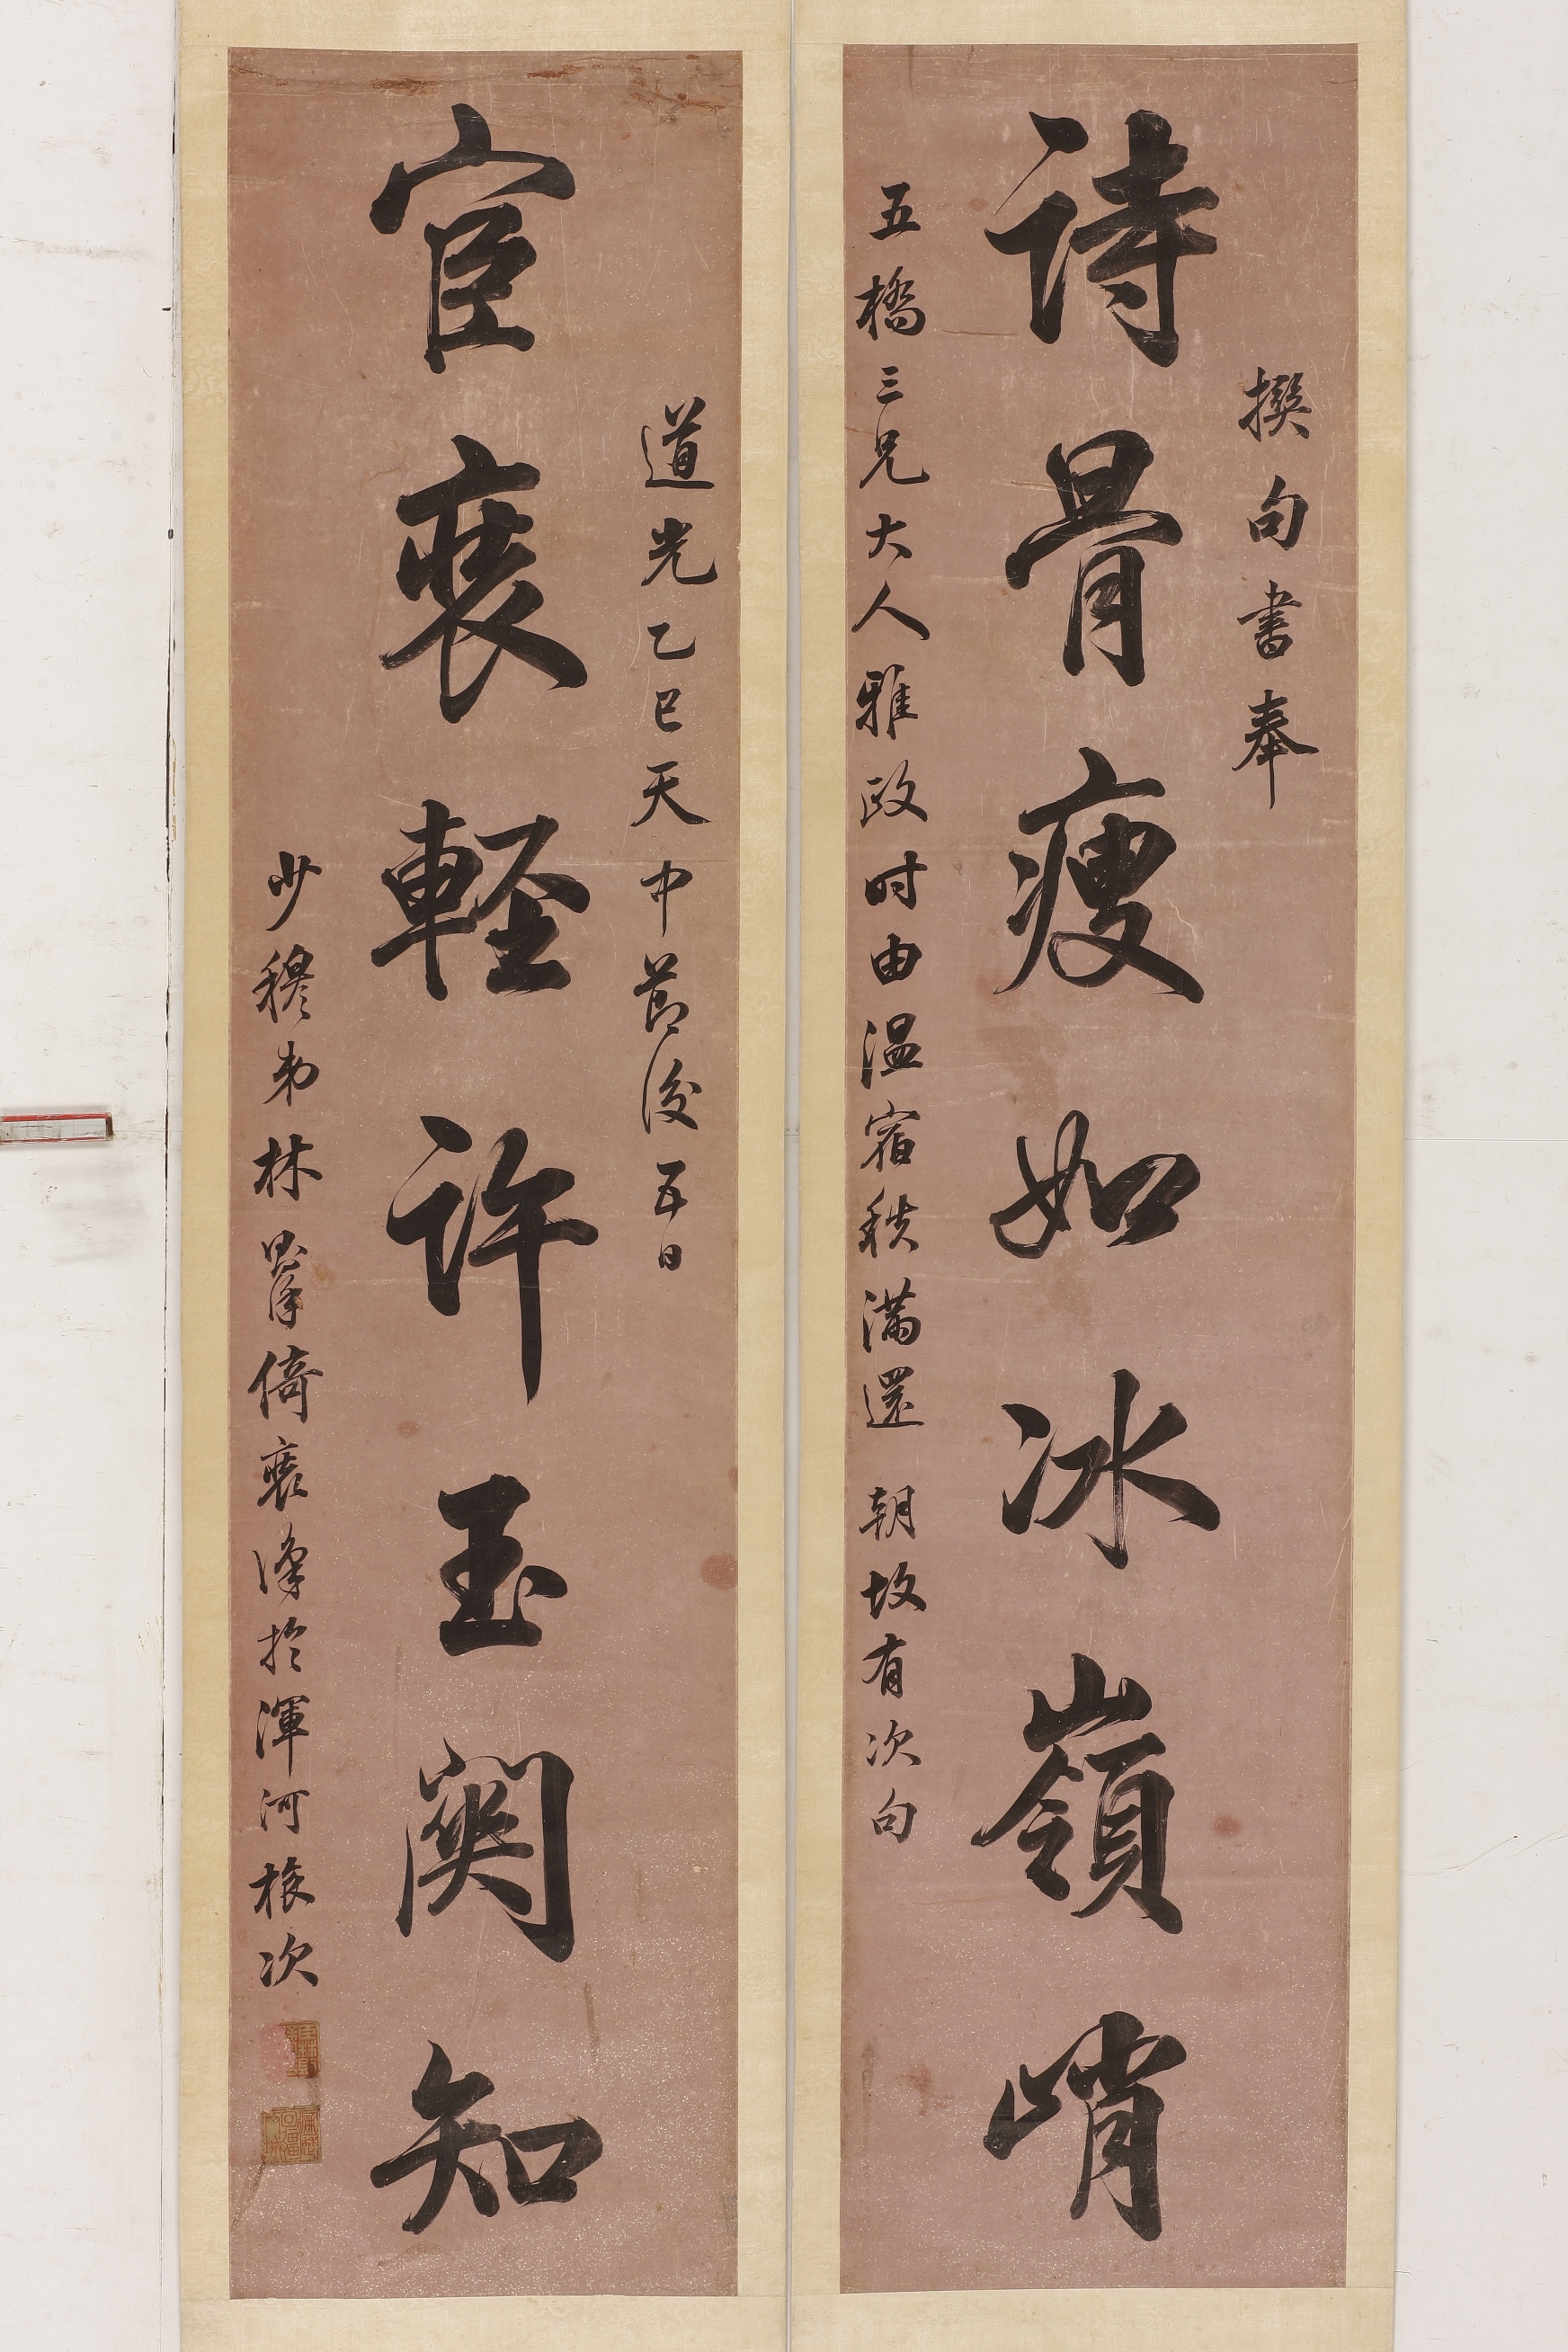 撰句書奉
詩骨瘦如冰嶺峭
五橋三兄大人雅政时由温宿秩滿還 朝故有次句
道光乙巳天中節後五日
宦裝輕許玉關知
少穆弟林則徐倚裝於渾河旅次